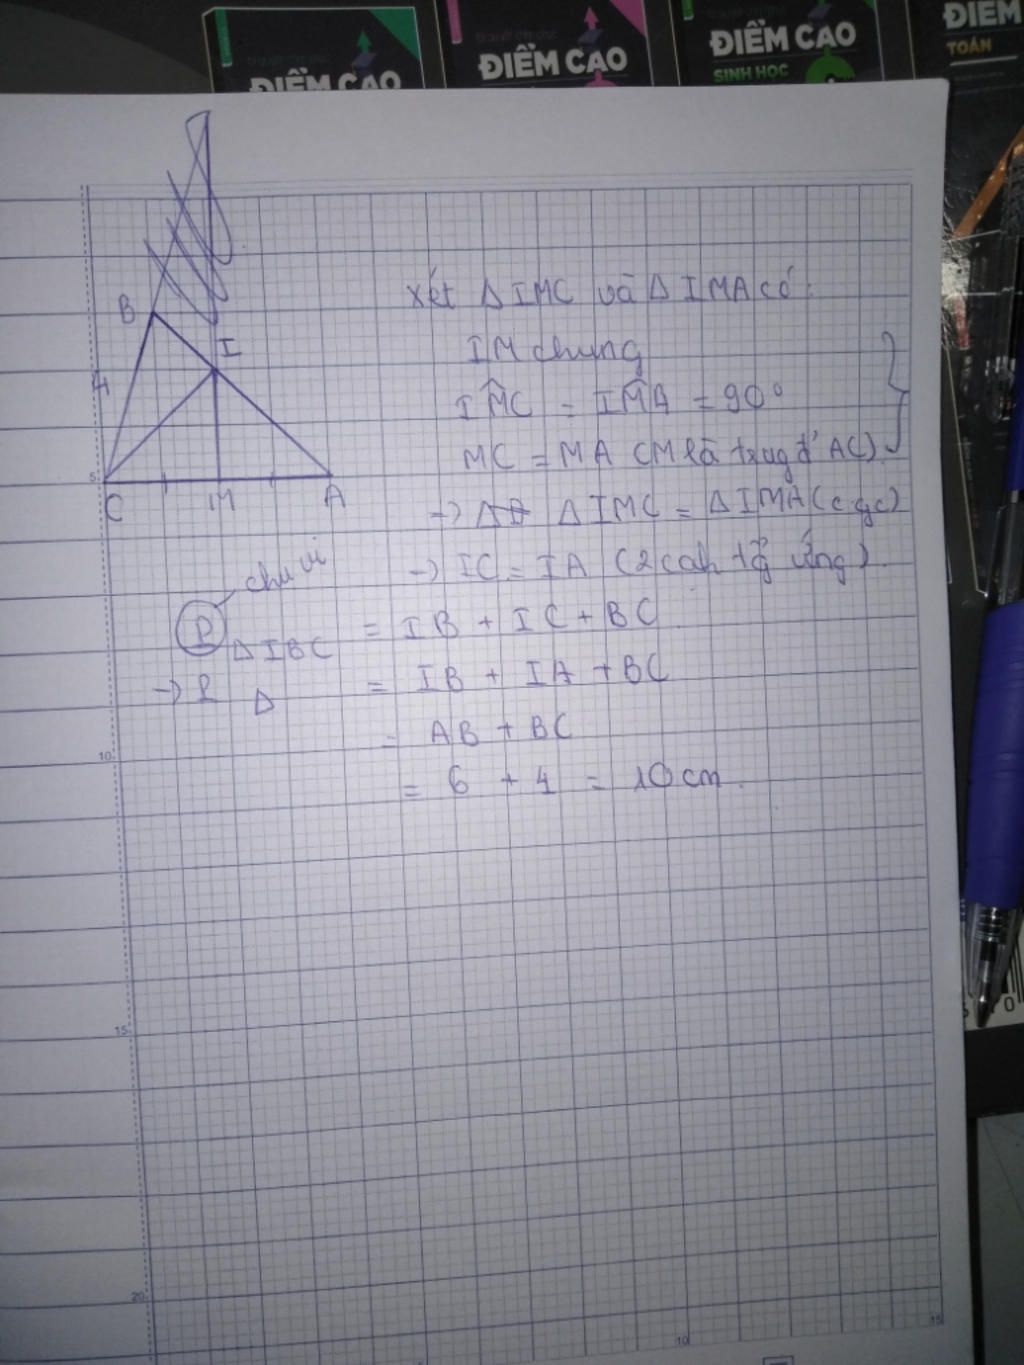 ĐIỂM CAO
ĐIỂM CAO
ĐIỂM CAO
SINH HỌC
ĐIỂM
TOÁN
B
I
4
C
M
A
Xét Δ IMC và Δ IMA có:
IM chung
IM̂C = IM̂A = 90°
MC = MA (M là trug đ' AC)
→ Δ IMC = Δ IMA (c.gc)
→ IC = IA (2 cah tg̉ ứng)
chu vi
P Δ IBC = IB + IC + BC
→ P Δ = IB + IA + BC
= AB + BC
= 6 + 4 = 10 cm
5
10
15
20
10
15